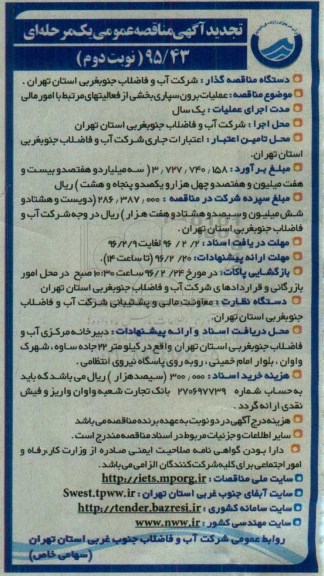 تجدید آگهی مناقصه عمومی یک مرحله ای
۹۵/۴۳ (نوبت دوم)
دستگاه مناقصه گذار : شرکت آب و فاضلاب جنوبغربی استان تهران .
موضوع مناقصه : عملیات برون سپاری بخشی از فعالیتهای مرتبط با امور مالی
مدت اجرای عملیات : یک سال
محل اجرا : شرکت آب و فاضلاب جنوبغربی استان تهران
محل تامین اعتبار : اعتبارات جاری شرکت آب و فاضلاب جنوبغربی
استان تهران.
مبلغ برآورد : ۳/۷۲۷/۷۴۰/۱۵۸ ( سه میلیارد و هفتصد و بیست و
هفت میلیون و هفتصد و چهل هزار و یکصد و پنجاه و هشت ) ریال
مبلغ سپرده شرکت در مناقصه : ۲۸۶/۳۸۷/۰۰۰ (دویست و هشتاد و
شش میلیون و سیصد و هشتاد و هفت هزار) ریال در وجه شرکت آب و
فاضلاب جنوبغربی استان تهران .
مهلت دریافت اسناد : ۹۶/۲/۲ لغایت ۹۶/۲/۹
مهلت ارائه پیشنهادات: ۹۶/۲/۲۰ (تا ساعت ۱۴).
بازگشایی پاکات: در مورخ ۹۶/۲/۲۴ ساعت ۱۰:۳۰ صبح در محل امور
بازرگانی و قراردادهای شرکت آب و فاضلاب جنوبغربی استان تهران
دستگاه نظارت : معاونت مالی و پشتیبانی شرکت آب و فاضلاب
جنوبغربی استان تهران.
محل دریافت اسناد و ارائه پیشنهادات : دبیرخانه مرکزی آب و
فاضلاب جنوبغربی استان تهران واقع در کیلومتر ۲۲ جاده ساوه ، شهرک
واوان ، بلوار امام خمینی ، روبه روی پاسگاه نیروی انتظامی .
هزینه خرید اسناد : ۳۰۰/۰۰۰ ( سیصد هزار ) ریال می باشد که باید
به حساب شماره ۲۷۰۶۹۷۷۳۹ بانک تجارت شعبه واوان واریز و فیش
نقدی ارائه گردد .
هزینه درج آگهی در دو نوبت به عهده برنده مناقصه می باشد
سایر اطلاعات و جزئیات مربوط در اسناد مناقصه مندرج است .
دارا بودن گواهی نامه صلاحیت ایمنی صادره از وزارت کار رفاه و
امور اجتماعی برای کلیه شرکت کنندگان الزامی می باشد.
سایت ملی مناقصات : http://iets.mporg.ir
سایت آبفای جنوب غربی استان تهران : Swest.tpww.ir
سایت سامانه کشوری : http://tender.bazresi.ir
سایت مهندسی کشور : www.nww.ir
روابط عمومی شرکت آب و فاضلاب جنوب غربی استان تهران
(سهامی خاص)